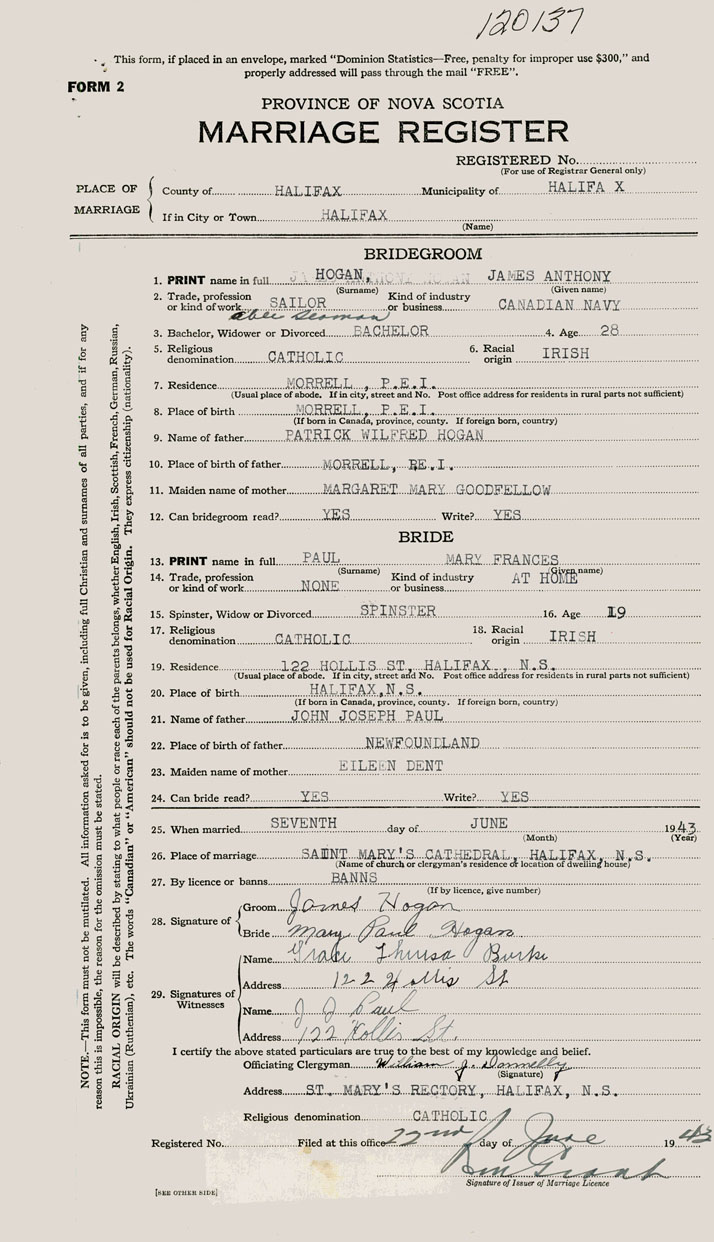 120137
This form, if placed in an envelope, marked "Dominion Statistics—Free, penalty for improper use $300," and
properly addressed will pass through the mail "FREE".
FORM 2
PROVINCE OF NOVA SCOTIA
MARRIAGE REGISTER
REGISTERED No.
(For use of Registrar General only)
PLACE OF MARRIAGE
County of HALIFAX Municipality of HALIFA X
If in City or Town HALIFAX
(Name)
BRIDEGROOM
1. PRINT name in full HOGAN, JAMES ANTHONY
(Surname) (Given name)
2. Trade, profession or kind of work SAILOR Kind of industry or business CANADIAN NAVY
able seaman
3. Bachelor, Widower or Divorced BACHELOR 4. Age 28
5. Religious denomination CATHOLIC 6. Racial origin IRISH
7. Residence MORRELL, P.E.I.
(Usual place of abode. If in city, street and No. Post office address for residents in rural parts not sufficient)
8. Place of birth MORRELL, P.E.I.
(If born in Canada, province, county. If foreign born, country)
9. Name of father PATRICK WILFRED HOGAN
10. Place of birth of father MORRELL, PE.I.
11. Maiden name of mother MARGARET MARY GOODFELLOW
12. Can bridegroom read? YES Write? YES
BRIDE
13. PRINT name in full PAUL MARY FRANCES
(Surname) (Given name)
14. Trade, profession or kind of work NONE Kind of industry or business AT HOME
15. Spinster, Widow or Divorced SPINSTER 16. Age 19
17. Religious denomination CATHOLIC 18. Racial origin IRISH
19. Residence 122 HOLLIS ST, HALIFAX, N.S.
(Usual place of abode. If in city, street and No. Post office address for residents in rural parts not sufficient)
20. Place of birth HALIFAX,N.S.
(If born in Canada, province, county. If foreign born, country)
21. Name of father JOHN JOSEPH PAUL
22. Place of birth of father NEWFOUNDLAND
23. Maiden name of mother EILEEN DENT
24. Can bride read? YES Write? YES
25. When married SEVENTH day of JUNE 1943
(Month) (Year)
26. Place of marriage SAINT MARY'S CATHEDRAL, HALIFAX, N.S.
(Name of church or clergyman's residence or location of dwelling house)
27. By licence or banns BANNS
(If by licence, give number)
28. Signature of
Groom James Hogan
Bride Mary Paul Hogan
29. Signatures of Witnesses
Name Grace Theresa Burke
Address 122 Hollis St
Name J J Paul
Address 122 Hollis St.
I certify the above stated particulars are true to the best of my knowledge and belief.
Officiating Clergyman William J. Donnelly
(Signature)
Address ST. MARY'S RECTORY, HALIFAX, N.S.
Religious denomination CATHOLIC
Registered No. Filed at this office 22nd day of June 1943
Signature of Issuer of Marriage Licence
[SEE OTHER SIDE]
NOTE.—This form must not be mutilated. All information asked for is to be given, including full Christian and surnames of all parties, and if for any
reason this is impossible, the reason for the omission must be stated.
RACIAL ORIGIN will be described by stating to what people or race each of the parents belongs, whether English, Irish, Scottish, French, German, Russian,
Ukrainian (Ruthenian), etc. The words "Canadian" or "American" should not be used for Racial Origin. They express citizenship (nationality).